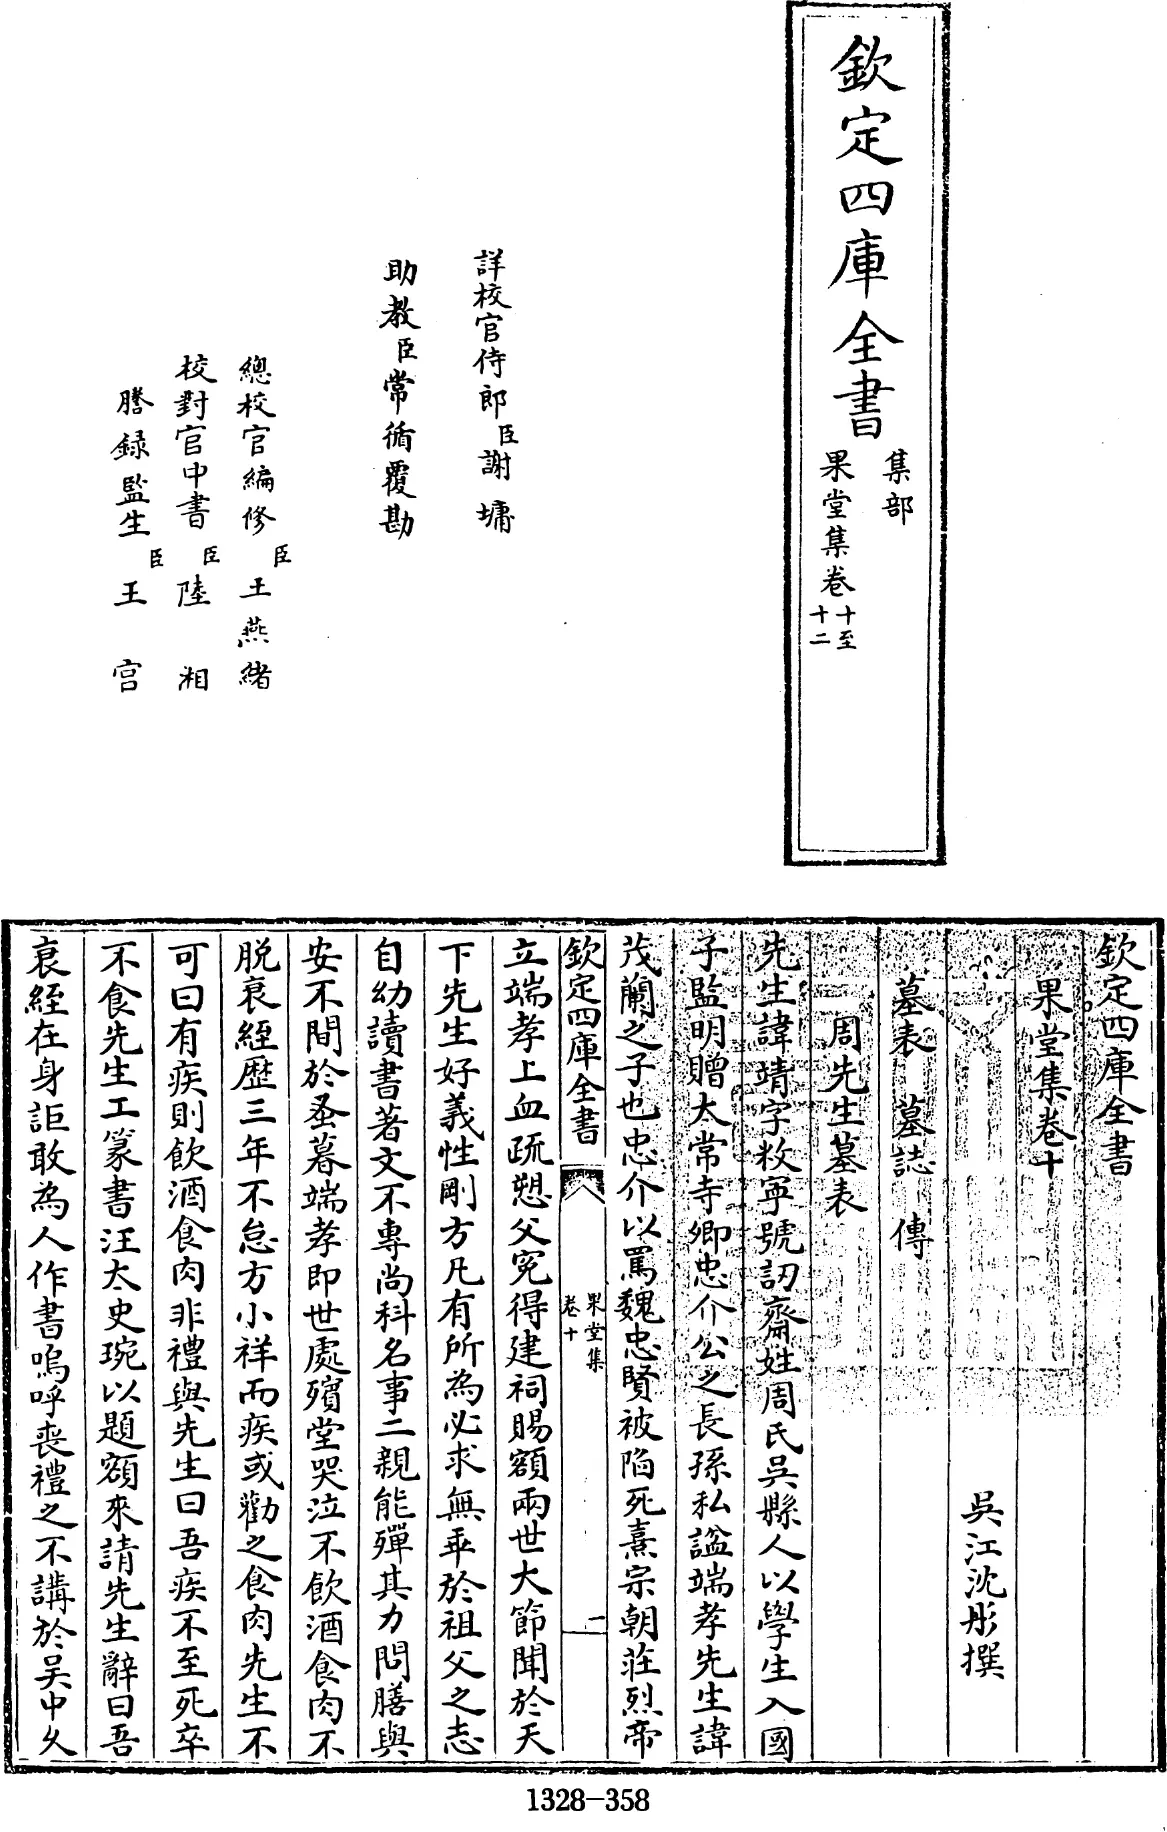 欽定四庫全書
集部
果堂集卷十至十二
詳校官侍郎臣謝墉
助教臣常循覆勘
總校官編修臣王燕緒
校對官中書臣陸湘
謄録監生臣王宫
欽定四庫全書
果堂集卷十
吳江沈彤撰
墓表 墓誌 傳
周先生墓表
先生諱靖字敉寕號訒齋姓周氏吳縣人以學生入國
子監明贈太常寺卿忠介公之長孫私諡端孝先生諱
茂蘭之子也忠介以罵魏忠賢被陷死熹宗朝莊烈帝
欽定四庫全書
果堂集
卷十
一
立端孝上血疏愬父寃得建祠賜額兩世大節聞於天
下先生好義性剛方凡有所為必求無乖於祖父之志
自幼讀書著文不專尚科名事二親能殫其力問膳與
安不間於蚤暮端孝即世處殯堂哭泣不飲酒食肉不
脱衰絰歴三年不怠方小祥而疾或勸之食肉先生不
可曰有疾則飲酒食肉非禮與先生曰吾疾不至死卒
不食先生工篆書汪太史琬以題額來請先生辭曰吾
衰絰在身詎敢為人作書嗚呼喪禮之不講於吳中久
1328-358